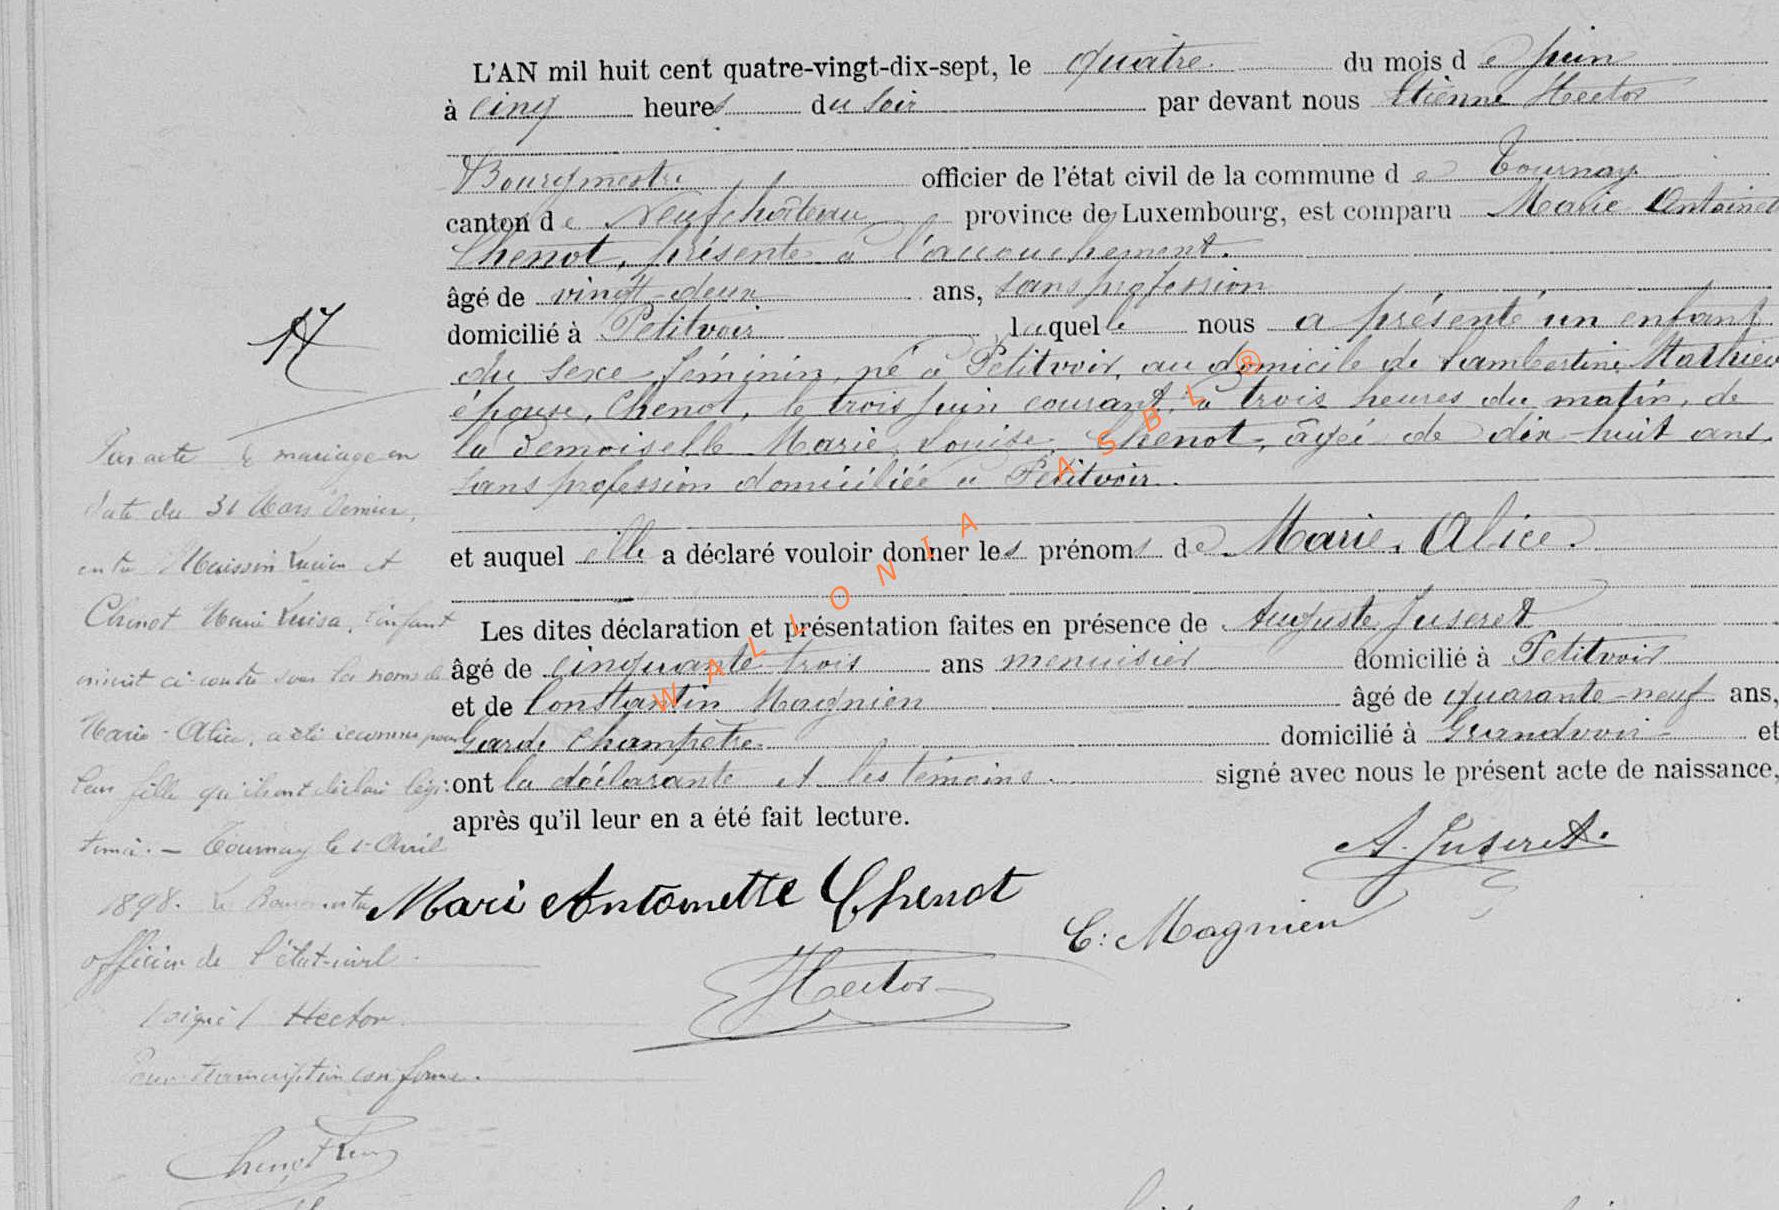 L'AN mil huit cent quatre-vingt-dix-sept, le quatre du mois de Juin
à cinq heures du soir par devant nous Etienne Hector
Bourgmestre officier de l'état civil de la commune de Tournay
canton de Neufchâteau province de Luxembourg, est comparu Marie Antoinette
Chenot, présente à l'accouchement.
âgé de vingt-deux ans, sans profession
domicilié à Petitvoir laquelle nous a présenté un enfant
du sexe féminin, né à Petitvoir, au domicile de Lambertine Mathieu
épouse, Chenot, le trois Juin courant, à trois heures du matin, de
la Demoiselle Marie, Louise, Chenot, âgée de dix-huit ans,
sans profession domiciliée à Petitvoir.
et auquel elle a déclaré vouloir donner les prénoms de Marie, Alice.
Les dites déclaration et présentation faites en présence de Auguste Juseret
âgé de cinquante trois ans menuisier domicilié à Petitvoir
et de Constantin Magnien âgé de quarante-neuf ans,
Garde Champêtre domicilié à Grandvoir et
ont la déclarante et les témoins signé avec nous le présent acte de naissance,
après qu'il leur en a été fait lecture.
A. Juseret.
Marie Antoinette Chenot
C: Magnien
Hector
17
Par acte de mariage en
date du 31 Mars dernier,
entre Maissin Lucien et
Chenot Marie Luisa, l'enfant
inscrit ci-contre sous les noms de
Marie-Alice, a été reconnue pour
leur fille qu'ils ont déclaré légi-
timer. — Tournay le 1r Avril
1898. Le Bourgmestre
officier de l'état-civil
/signé/ Hector
Pour transcription conforme.
Chenot
WALLONIA ASBL ®